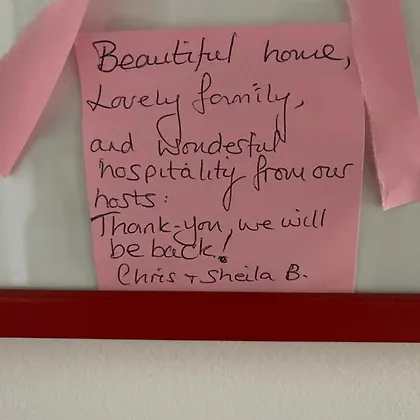 Beautiful home,
Lovely family,
and wonderful
hospitality from our
hosts:
Thank-you, we will
be back!
Chris + Sheila B.